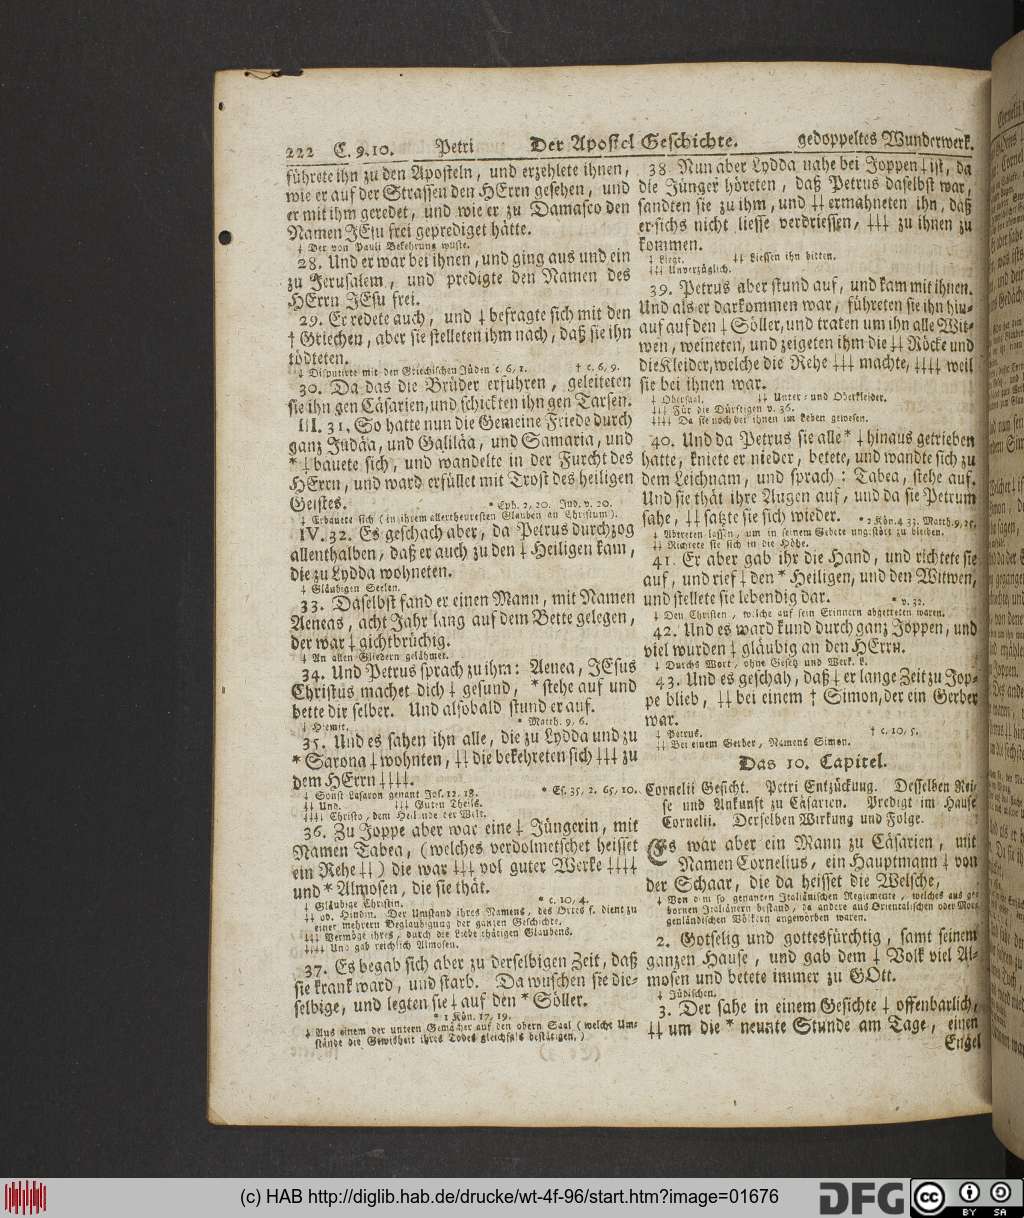 222 C. 9.10. Petri Der Apostel Geschichte. gedoppeltes Wunderwerk.
führete ihn zu den Aposteln, und erzehlete ihnen,
wie er auf der Strassen den HErrn gesehen, und
er mit ihm geredet, und wie er zu Damasco den
Namen JEsu frei geprediget hätte.
‡ Der von Pauli Bekehrung wuste.
28. Und er war bei ihnen, und ging aus und ein
zu Jerusalem, und predigte den Namen des
HErrn JEsu frei.
29. Er redete auch, und ‡ befragte sich mit den
† Griechen, aber sie stelleten ihm nach, daß sie ihn
tödteten.
‡ Disputirte mit den Griechischen Jüden c. 6, 1. † c. 6, 9.
30. Da das die Brüder erfuhren, geleiteten
sie ihn gen Cäsarien, und schickten ihn gen Tarsen.
III. 31. So hatte nun die Gemeine Friede durch
ganz Judäa, und Galiläa, und Samaria, und
* ‡ bauete sich, und wandelte in der Furcht des
HErrn, und ward erfüllet mit Trost des heiligen
Geistes. * Eph. 2, 20. Jud. v. 20.
‡ Erbauete sich (in ihrem allertheuresten Glauben an Christum).
IV. 32. Es geschach aber, da Petrus durchzog
allenthalben, daß er auch zu den ‡ Heiligen kam,
die zu Lydda wohneten.
‡ Gläubigen Seelen.
33. Daselbst fand er einen Mann, mit Namen
Aeneas, acht Jahr lang auf dem Bette gelegen,
der war ‡ gichtbrüchig.
‡ An allen Gliedern gelähmet.
34. Und Petrus sprach zu ihm: Aenea, JEsus
Christus machet dich ‡ gesund, * stehe auf und
bette dir selber. Und alsobald stund er auf.
‡ Hiemit. * Matth. 9, 6.
35. Und es sahen ihn alle, die zu Lydda und zu
* Sarona ‡ wohnten, ‡‡ die bekehreten sich ‡‡‡ zu
dem HErrn ‡‡‡‡.
‡ Sonst Lasaron genant Jos. 12. 18. * Es. 35, 2. 65, 10.
‡‡ Und. ‡‡‡ Guten Theils.
‡‡‡‡ Christo, dem Heilande der Welt.
36. Zu Joppe aber war eine ‡ Jüngerin, mit
Namen Tabea, (welches verdolmetschet heisset
ein Rehe ‡‡) die war ‡‡‡ vol guter Werke ‡‡‡‡
und * Almosen, die sie thät.
‡ Gläubige Christin. * c. 10, 4.
‡‡ od. Hindin. Der Umstand ihres Namens, des Ortes s. dient zu
einer mehrern Beglaubigung der ganzen Geschichte.
‡‡‡ Vermöge ihres, durch die Liebe thätigen Glaubens.
‡‡‡‡ Und gab reichlich Almosen.
37. Es begab sich aber zu derselbigen Zeit, daß
sie krank ward, und starb. Da wuschen sie die-
selbige, und legten sie ‡ auf den * Söller.
* 1 Kön. 17, 19.
‡ Aus einem der untern Gemächer auf den obern Saal (welche Um-
stände die Gewisheit ihres Todes gleichfals bestätigen.)
38. Nun aber Lydda nahe bei Joppen ‡ ist, da
die Jünger höreten, daß Petrus daselbst war,
sandten sie zu ihm, und ‡‡ ermahneten ihn, daß
er sichs nicht liesse verdriessen, ‡‡‡ zu ihnen zu
kommen.
‡ Liegt. ‡‡ Liessen ihn bitten.
‡‡‡ Unverzüglich.
39. Petrus aber stund auf, und kam mit ihnen.
Und als er darkommen war, führeten sie ihn hin-
auf auf den ‡ Söller, und traten um ihn alle Wit-
wen, weineten, und zeigeten ihm die ‡‡ Röcke und
die Kleider, welche die Rehe ‡‡‡ machte, ‡‡‡‡ weil
sie bei ihnen war.
‡ Obersaal. ‡‡ Unter- und Oberkleider.
‡‡‡ Für die Dürftigen v. 36.
‡‡‡‡ Da sie noch bei ihnen im Leben gewesen.
40. Und da Petrus sie alle * ‡ hinaus getrieben
hatte, kniete er nieder, betete, und wandte sich zu
dem Leichnam, und sprach: Tabea, stehe auf.
Und sie thät ihre Augen auf, und da sie Petrum
sahe, ‡‡ satzte sie sich wieder. * 2 Kön. 4. 33. Matth. 9, 25.
‡ Abtreten lassen, um in seinem Gebete ungestört zu bleiben.
‡‡ Richtete sie sich in die Höhe.
41. Er aber gab ihr die Hand, und richtete sie
auf, und rief ‡ den * Heiligen, und den Witwen,
und stellete sie lebendig dar. * v. 32.
‡ Den Christen, welche auf sein Erinnern abgetreten waren.
42. Und es ward kund durch ganz Joppen, und
viel wurden ‡ gläubig an den HErrn.
‡ Durchs Wort, ohne Gesetz und Werk. L.
43. Und es geschah, daß ‡ er lange Zeit zu Jop-
pe blieb, ‡‡ bei einem † Simon, der ein Gerber
war.
‡ Petrus. † c. 10, 5.
‡‡ Bei einem Gerber, Namens Simon.
Das 10. Capitel.
Cornelii Gesicht. Petri Entzückung. Desselben Rei-
se und Ankunft zu Cäsarien. Predigt im Hause
Cornelii. Derselben Wirkung und Folge.
Es war aber ein Mann zu Cäsarien, mit
Namen Cornelius, ein Hauptmann ‡ von
der Schaar, die da heisset die Welsche,
‡ Von dem so genanten Italiänischen Regiemente, welches aus ge-
bornen Italiänern bestand, da andere aus Orientalischen oder Mor-
genländischen Völkern angeworben waren.
2. Gotselig und gottesfürchtig, samt seinem
ganzen Hause, und gab dem ‡ Volk viel Al-
mosen und betete immer zu GOtt.
‡ Jüdischen.
3. Der sahe in einem Gesichte ‡ offenbarlich,
‡‡ um die * neunte Stunde am Tage, einen
Engel
(c) HAB http://diglib.hab.de/drucke/wt-4f-96/start.htm?image=01676
DFG
cc BY SA